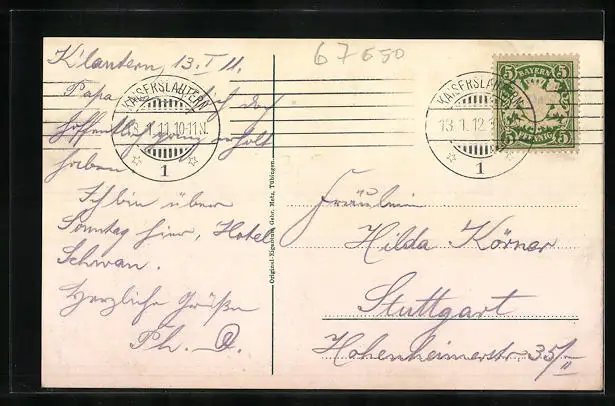 67650
K'lautern, 13. I 11.
Papa sich doch
hoffentlich ganz erholt
haben.
Ich bin über
Sonntag hier, Hotel
Schwan.
Herzliche Grüße
Ph.
KAISERSLAUTERN
13.1.11.10-11N.
1
KAISERSLAUTERN
13.1.12.
1
5 BAYERN 5
5 PFENNIG 5
Original-Eigentum Gebr. Metz, Tübingen.
Fräulein
Hilda Körner
Stuttgart
Hohenheimerstr. 35/II